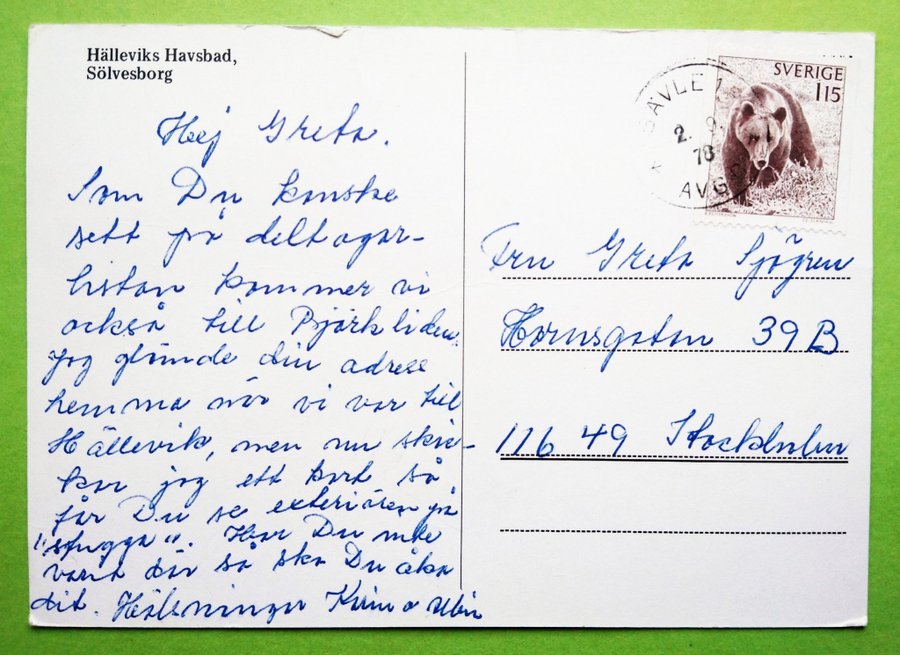 Hälleviks Havsbad,
Sölvesborg
Hej Greta.
Som Du kanske
sett på deltagar-
listan kommer vi
också till Björkliden.
Jag glömde din adress
hemma när vi var till
Hällevik, men nu skic-
kar jag ett kort så
får Du se exteriören på
Har Du inte
varit där så ska Du åka
dit. Hälsningar
SVERIGE
115
GÄVLE 1
2. 9.
78
AVG
Fru Greta Sjögren
Hornsgatan 39B
116 49 Stockholm